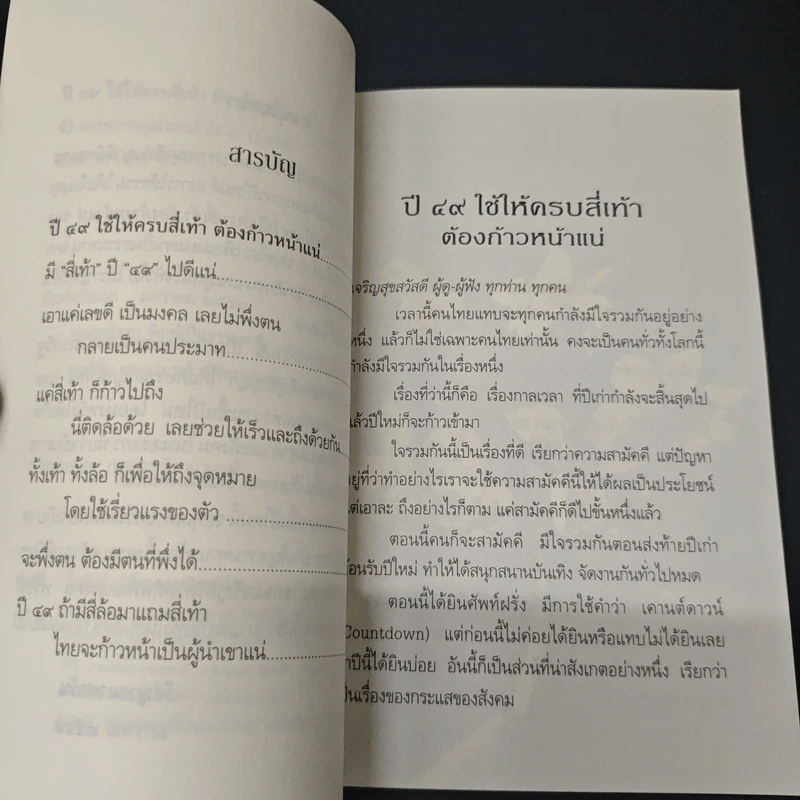 สารบัญ
ปี ๔๙ ใช้ให้ครบสี่เท้า ต้องก้าวหน้าแน่
มี “สี่เท้า” ปี “๔๙” ไปดีแน่
เอาแค่เลขดี เป็นมงคล เลยไม่พึ่งตน
กลายเป็นคนประมาท
แค่สี่เท้า ก็ก้าวไปถึง
นี่ติดล้อด้วย เลยช่วยให้เร็วและถึงด้วยกัน
ทั้งเท้า ทั้งล้อ ก็เพื่อให้ถึงจุดหมาย
โดยใช้เรี่ยวแรงของตัว
จะพึ่งตน ต้องมีตนที่พึ่งได้
ปี ๔๙ ถ้ามีสี่ล้อมาแถมสี่เท้า
ไทยจะก้าวหน้าเป็นผู้นำเขาแน่
ปี ๔๙ ใช้ให้ครบสี่เท้า
ต้องก้าวหน้าแน่
เจริญสุขสวัสดี ผู้ดู-ผู้ฟัง ทุกท่าน ทุกคน
เวลานี้คนไทยแทบจะทุกคนกำลังมีใจรวมกันอยู่อย่าง
หนึ่ง แล้วก็ไม่ใช่เฉพาะคนไทยเท่านั้น คงจะเป็นคนทั่วทั้งโลกนี้
กำลังมีใจรวมกันในเรื่องหนึ่ง
เรื่องที่ว่านี้ก็คือ เรื่องกาลเวลา ที่ปีเก่ากำลังจะสิ้นสุดไป
แล้วปีใหม่ก็จะก้าวเข้ามา
ใจรวมกันนี้เป็นเรื่องที่ดี เรียกว่าความสามัคคี แต่ปัญหา
อยู่ที่ว่าทำอย่างไรเราจะใช้ความสามัคคีนี้ให้ได้ผลเป็นประโยชน์
แต่เอาละ ถึงอย่างไรก็ตาม แค่สามัคคีก็ดีไปขั้นหนึ่งแล้ว
ตอนนี้คนก็จะสามัคคี มีใจรวมกันตอนส่งท้ายปีเก่า
ต้อนรับปีใหม่ ทำให้ได้สนุกสนานบันเทิง จัดงานกันทั่วไปหมด
ตอนนี้ได้ยินศัพท์ฝรั่ง มีการใช้คำว่า เคานต์ดาวน์
(Countdown) แต่ก่อนนี้ไม่ค่อยได้ยินหรือแทบไม่ได้ยินเลย
มาปีนี้ได้ยินบ่อย อันนี้ก็เป็นส่วนที่น่าสังเกตอย่างหนึ่ง เรียกว่า
เป็นเรื่องของกระแสของสังคม